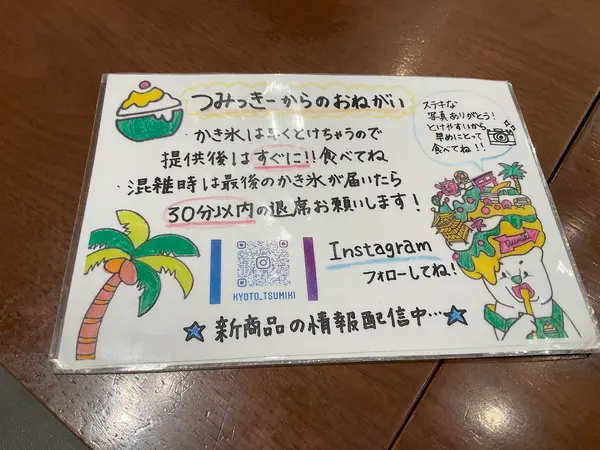 つみっきーからのおねがい
・かき氷は早くとけちゃうので
提供後はすぐに!!食べてね
・混雑時は最後のかき氷が届いたら
30分以内の退席お願いします!
KYOTO_TSUMIKI
Instagram
フォローしてね!
★新商品の情報配信中…★
ステキな
写真ありがとう!
とけやすいから
早めにとって
食べてね!!
Tsumiki